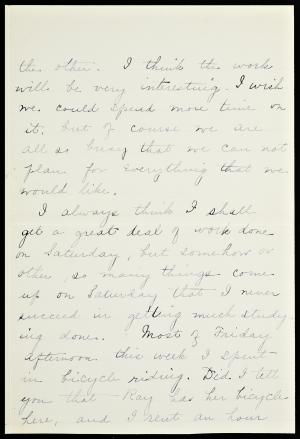 the other. I think the work
will be very interesting. I wish
we could spend more time on
it, but of course we are
all so busy that we can not
plan for everything that we
would like.
I always think I shall
get a great deal of work done
on Saturday, but somehow or
other, so many things come
up on Saturday that I never
succeed in getting much study-
ing done. Most of Friday
afternoon this week I spent
in bicycle riding. Did I tell
you that Kay has her bicycle
here, and I rent an hour